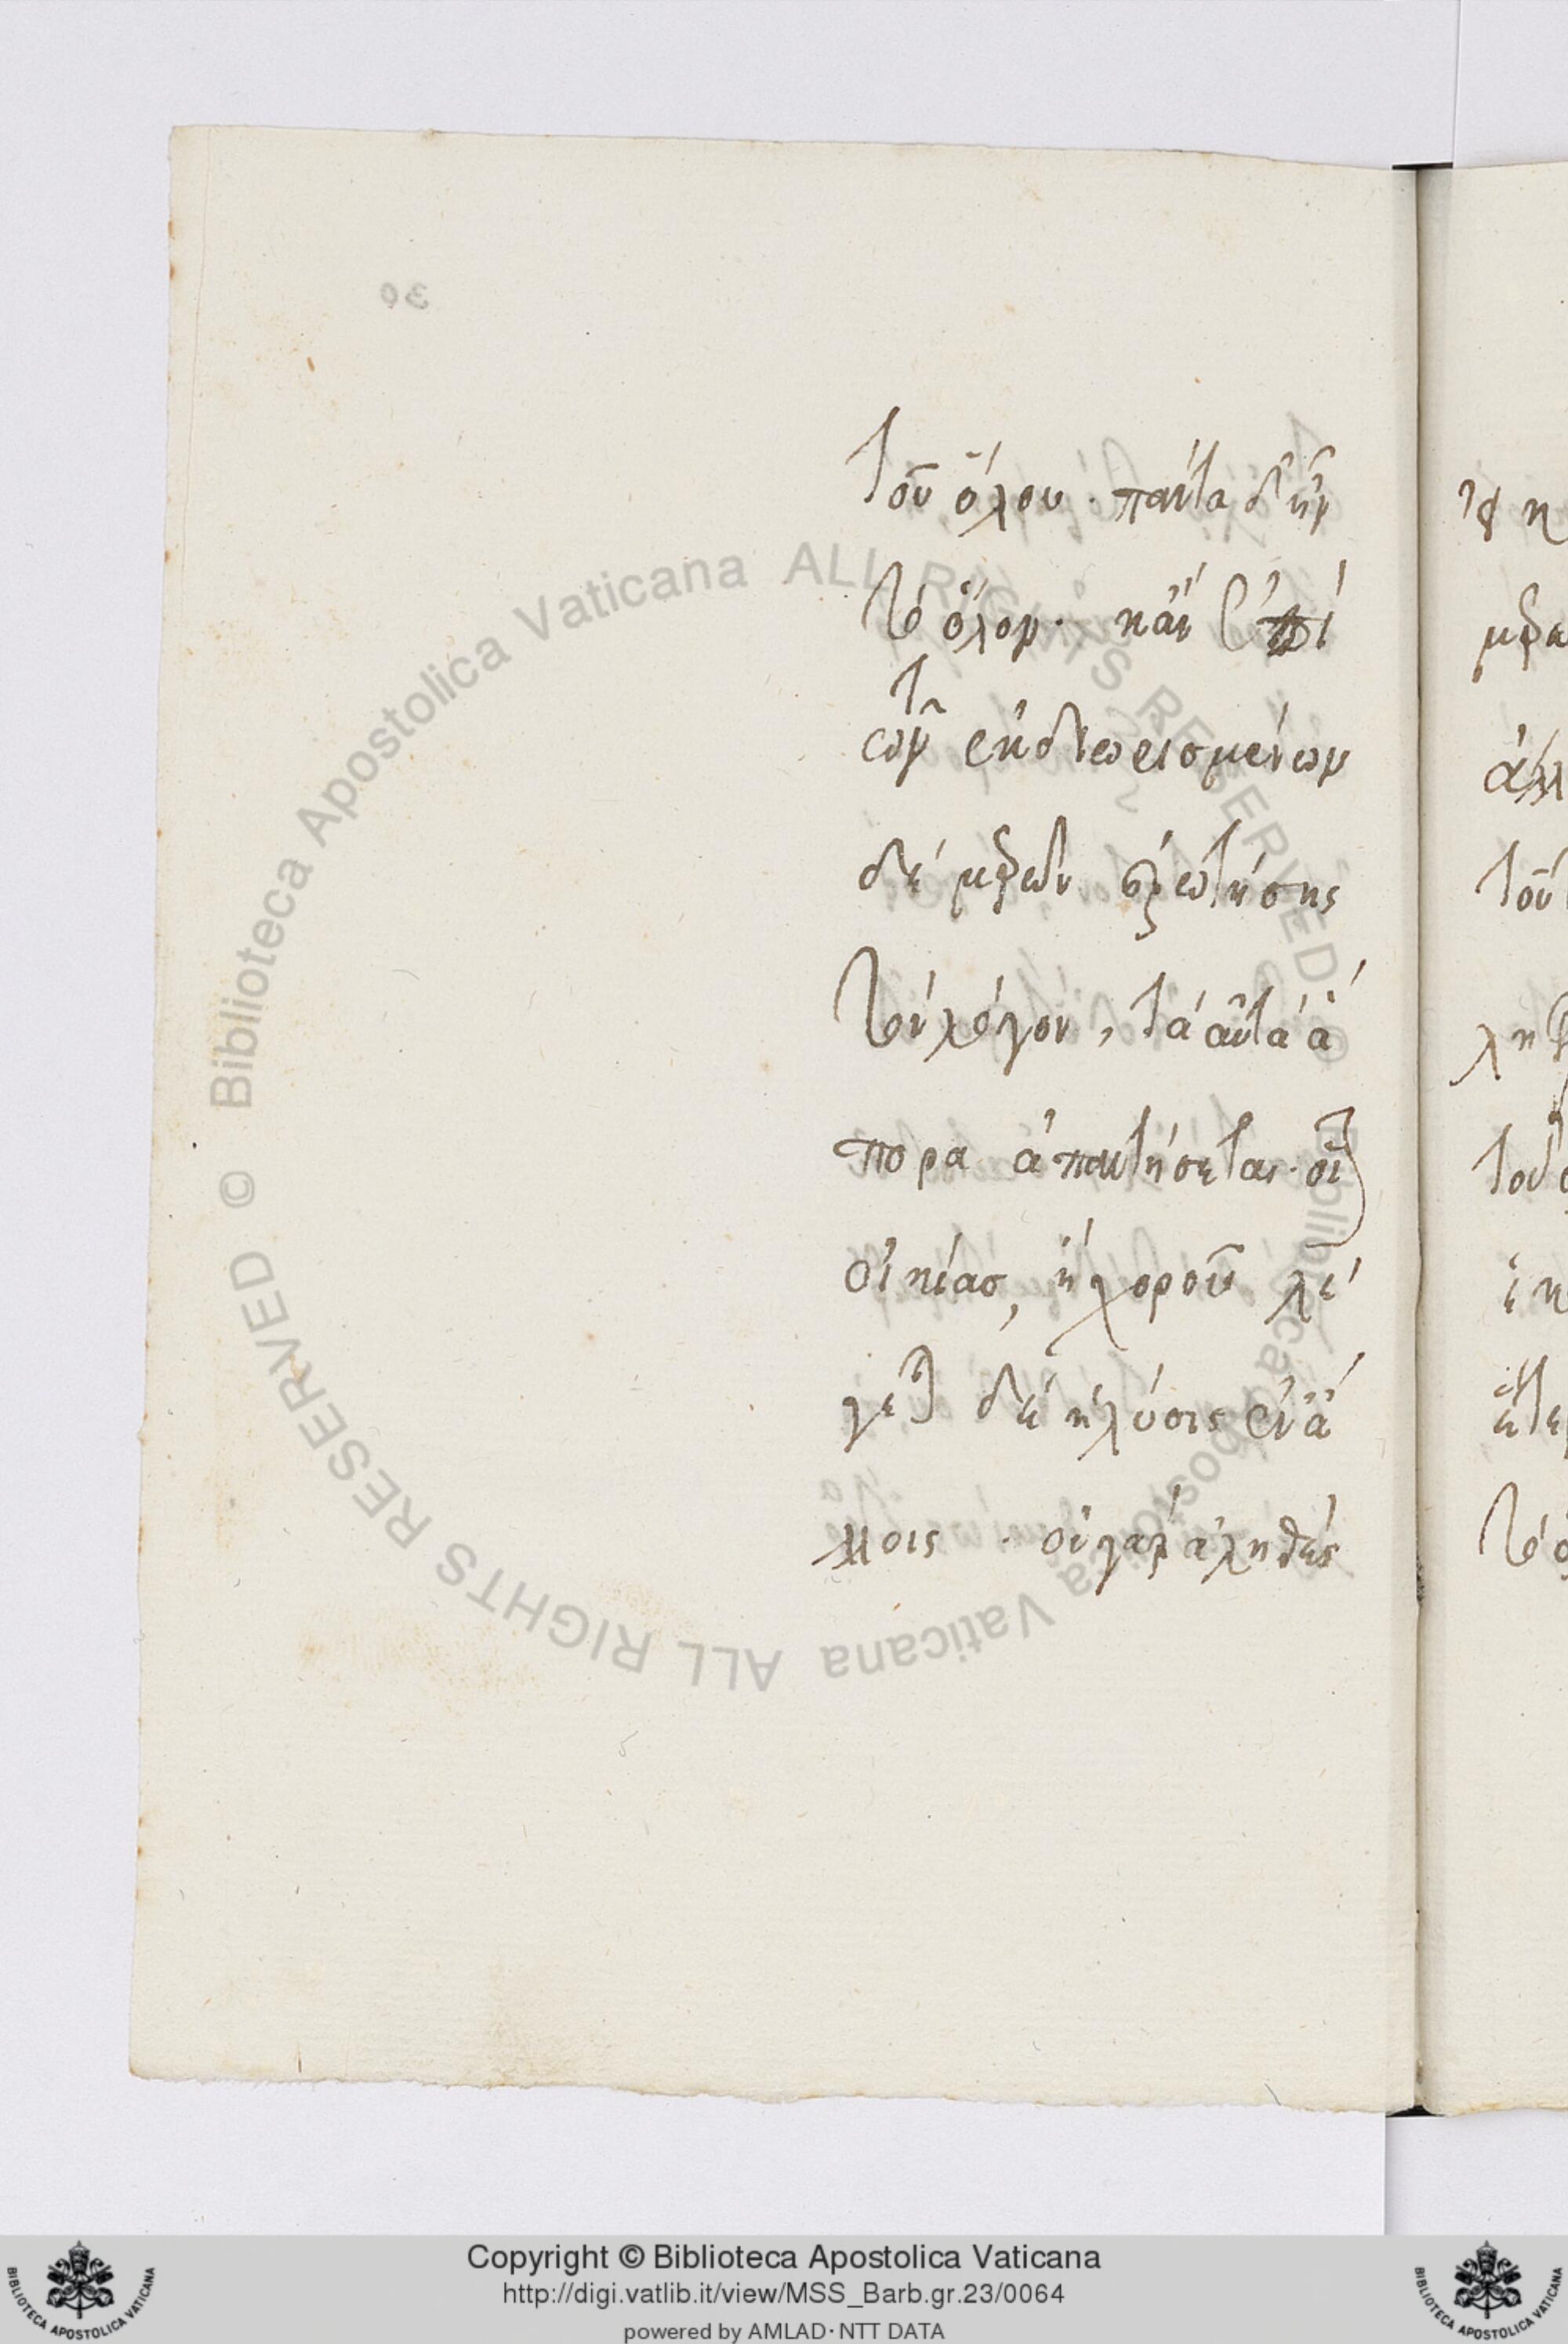 τοῦ ὅλου · πάντα δ' ἦν
τὸ ὅλον · κἂν ἐπὶ
τῶν ἐκ διωρισμένων
δὲ μερῶν ἐρωτήσῃς
τὸν λόγον, τὰ αὐτὰ ἄ
πορα ἀπαντήσεται · οἷον
οἰκίας, ἢ χοροῦ λέ
γεται δὲ ἡ λύσις ἐν ἄ
λλοις · οὐ γὰρ ἀληθὲς
30
© Biblioteca Apostolica Vaticana ALL RIGHTS RESERVED © Biblioteca Apostolica Vaticana ALL RIGHTS RESERVED
Copyright © Biblioteca Apostolica Vaticana
http://digi.vatlib.it/view/MSS_Barb.gr.23/0064
powered by AMLAD·NTT DATA
BIBLIOTECA APOSTOLICA VATICANA
BIBLIOTECA APOSTOLICA VATICANA